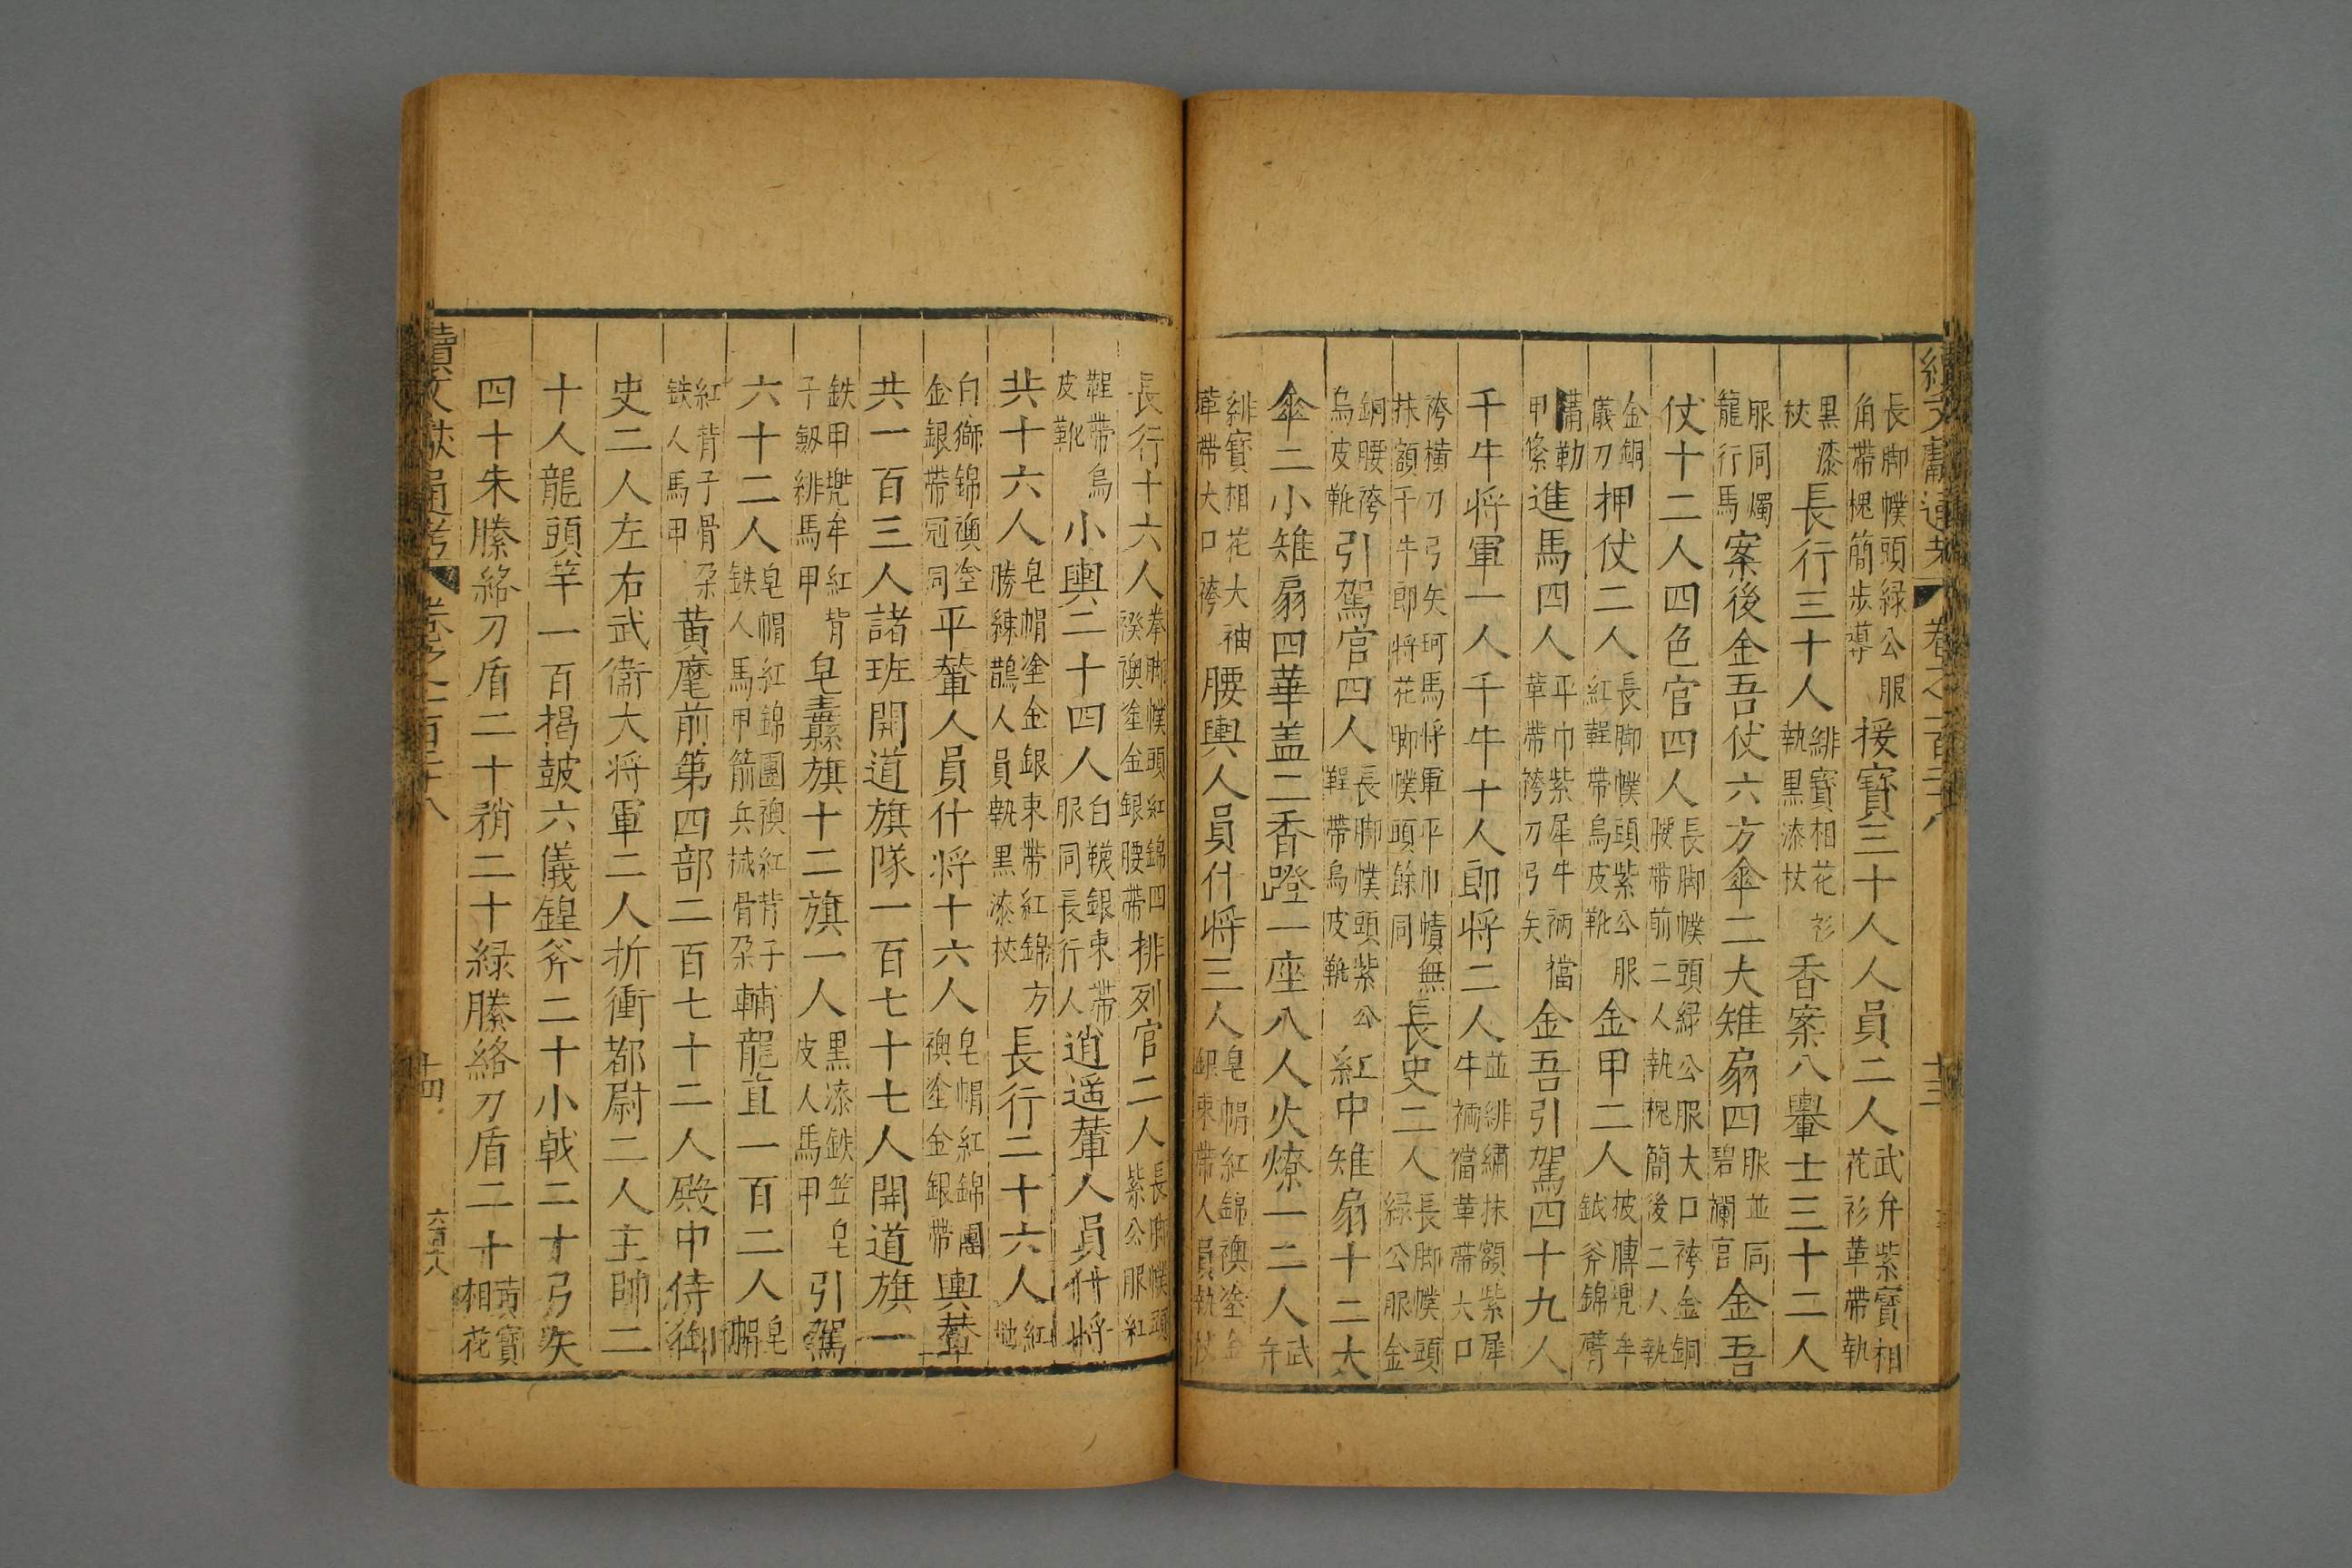 續文獻通考 卷之一百二十八 十三
長脚幞頭緑公服角帶槐簡步導援寶三十人人員二人武弁紫寶相花衫革帶執
黑漆杖長行三十人緋寶相花衫執黑漆杖香案八轝士三十二人
服同燭籠行馬案後金吾仗六方傘二大雉扇四服並同碧襴官金吾
仗十二人四色官四人長脚幞頭緑公服大口袴金銅腰帶前二人執槐簡後二人執
金銅儀刀押仗二人長脚幞頭紫公服紅鞓帶烏皮靴金甲二人披膊兜牟鉞斧錦臂
韝勒甲絛進馬四人平巾紫犀牛裲襠革帶袴刀弓矢金吾引駕四十九人
千牛将軍一人千牛十人郎将二人並緋繡抹額紫犀牛裲襠革帶大口
袴橫刀弓矢珂馬将軍平巾幘無抹額千牛郎将花脚幞頭餘同長史二人長脚幞頭緑公服金
銅腰袴烏皮靴引駕官四人長脚幞頭紫公鞓帶烏皮靴紅中雉扇十二大
傘二小雉扇四華盖二香蹬一座八人火燎一二人武弁
緋寶相花大袖革帶大口袴腰輿人員什将三人皂帽紅錦襖塗金銀束帶人員執杖
長行十六人拳脚幞頭紅錦四䙆襖塗金銀腰帶排列官二人長脚幞頭紫公服紅
鞓帶烏皮靴小輿二十四人白韈銀束帶服同長行人逍遥輦人員什将
共十六人皂帽塗金銀束帶紅錦方勝練鵲人員執黑漆杖長行二十六人紅地
白獅錦襖塗金銀帶冠同平輦人員什将十六人皂帽紅錦團襖塗金銀帶輿輦
共一百三人諸班開道旗隊一百七十七人開道旗一
鉄甲兜牟紅背子劔緋馬甲皂纛旗十二旗一人黑漆鉄笠皂皮人馬甲引駕
六十二人皂帽紅錦團襖紅背子鉄人馬甲箭兵械骨朶輔龍直一百二人皂帽
紅背子骨朶鉄人馬甲黃麾前第四部二百七十二人殿中侍御
史二人左右武衞大将軍二人折衝都尉二人主帥二
十人龍頭竿一百揭鼓六儀鍠斧二十小戟二十弓矢
四十朱縢絡刀盾二十矟二十緑縢絡刀盾二十黃寶相花
續文獻通考 卷之一百二十八 十四